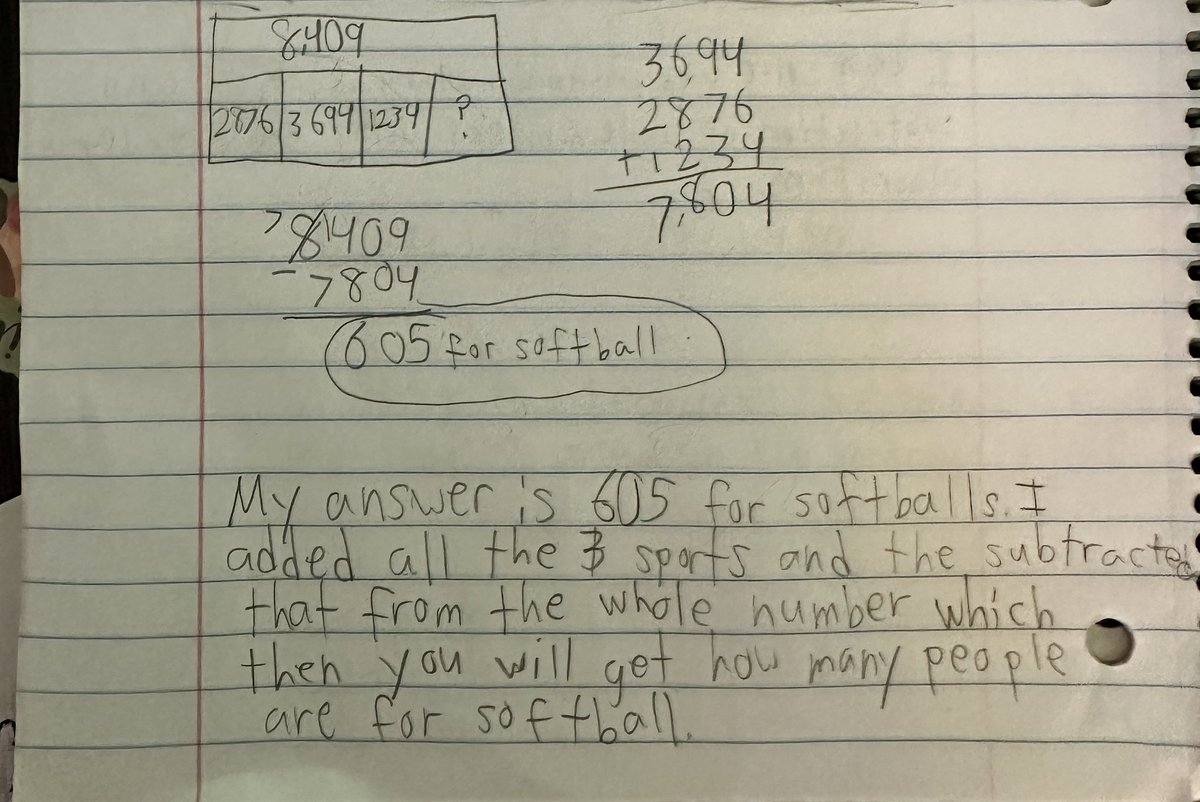 8,409
2876 3694 1234 ?
3694
2876
+1234
7,804
7 8,1409
- 7804
605 for softball
My answer is 605 for softballs. I
added all the 3 sports and the subtracted
that from the whole number which
then you will get how many people
are for softball.